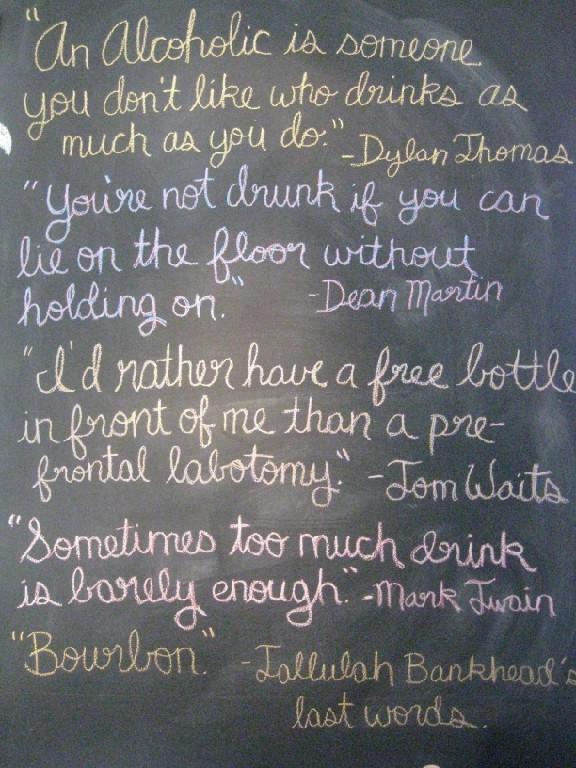 "An Alcoholic is someone
you don't like who drinks as
much as you do." -Dylan Thomas
"You're not drunk if you can
lie on the floor without
holding on." -Dean Martin
"I'd rather have a free bottle
in front of me than a pre-
frontal labotomy." -Tom Waits
"Sometimes too much drink
is barely enough." -Mark Twain
"Bourbon." -Tallulah Bankhead's
last words.